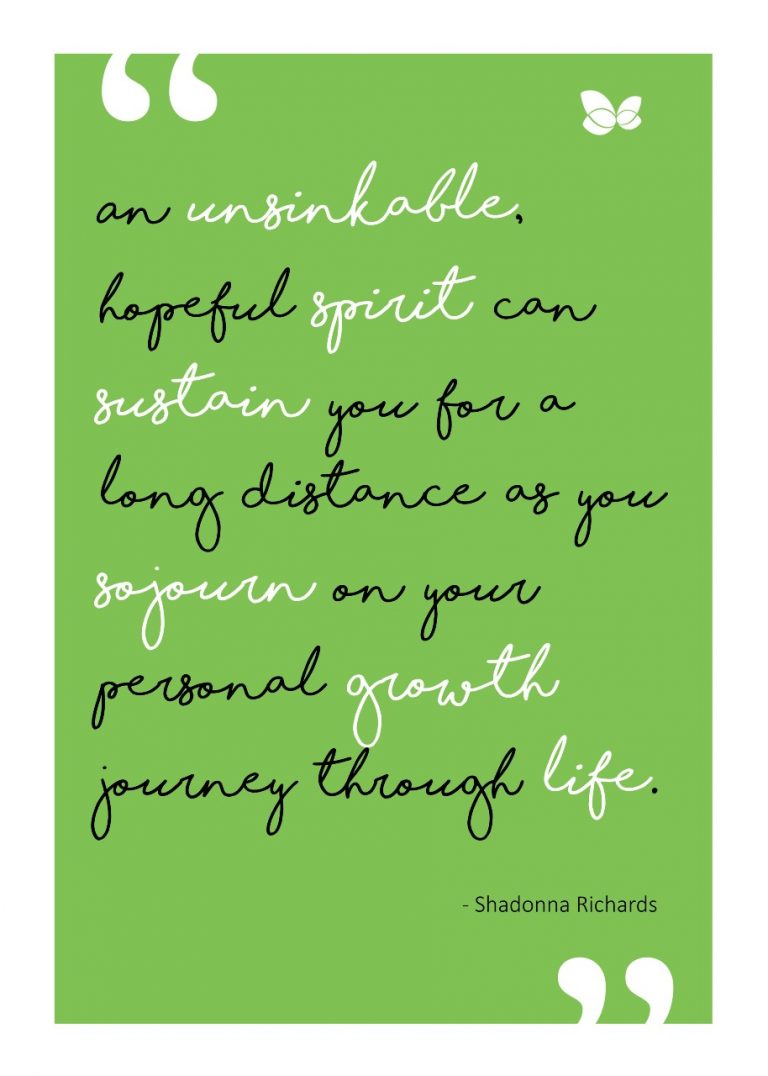 “
an unsinkable,
hopeful spirit can
sustain you for a
long distance as you
sojourn on your
personal growth
journey through life.
- Shadonna Richards
”